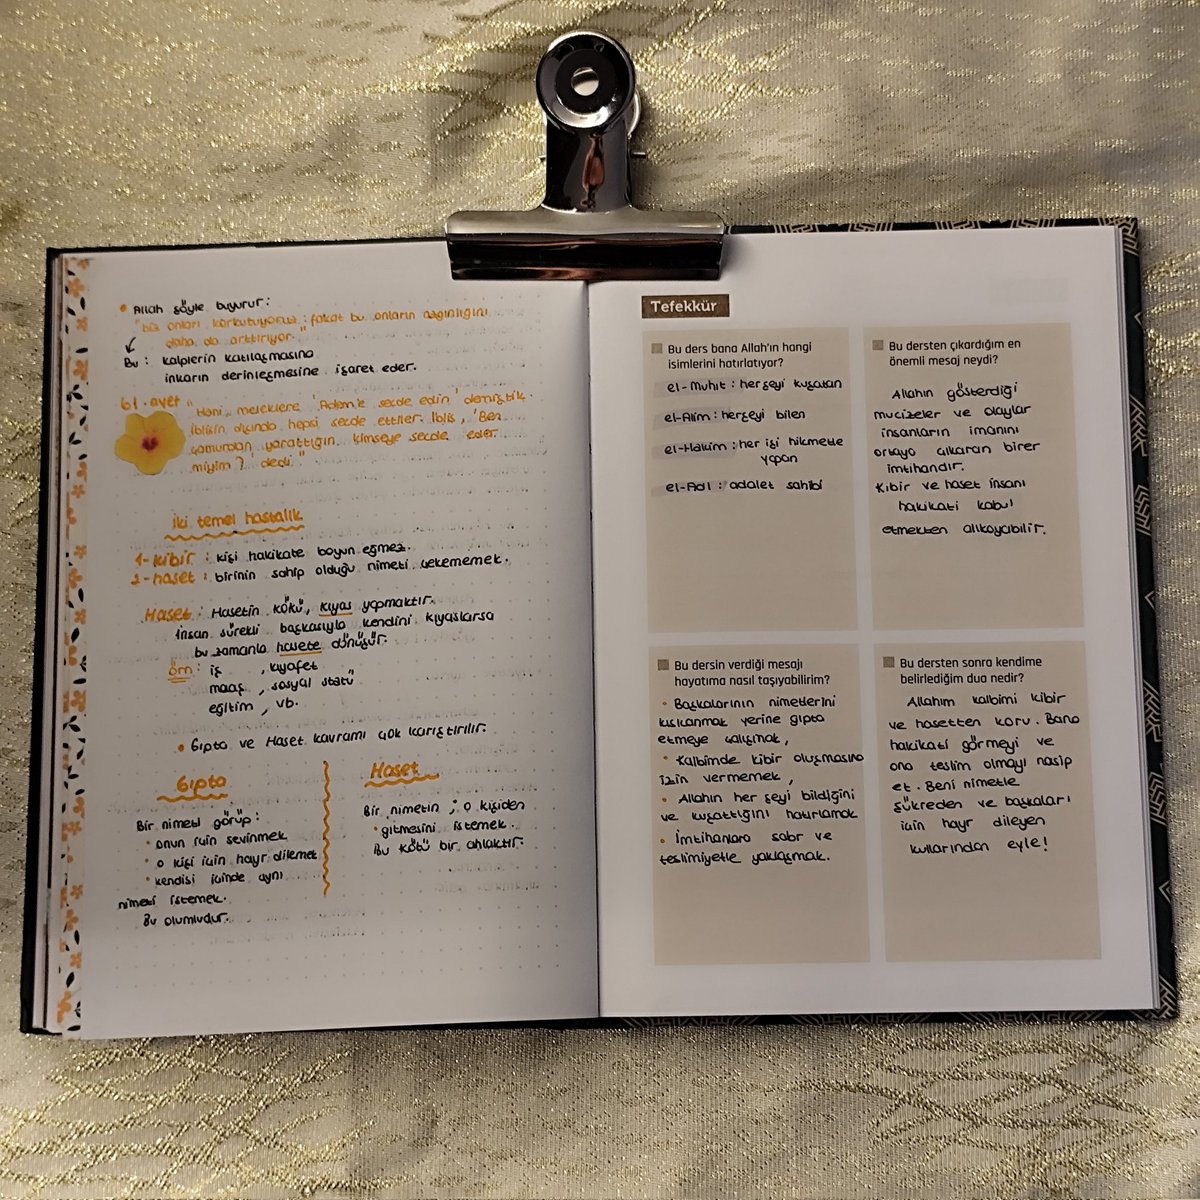 • Allah şöyle buyurur:
"biz onları korkutuyoruz; fakat bu onların azgınlığını
daha da arttırıyor."
Bu: kalplerin katılaşmasına
inkarın derinleşmesine işaret eder.
61. ayet "Hani, meleklere 'Adem'e secde edin' demiştik.
İblisin dışında hepsi secde ettiler. İblis, 'Ben
çamurdan yarattığın kimseye secde eder
miyim?' dedi."
İki temel hastalık
1- kibir : kişi hakikate boyun eğmez.
2- haset : birinin sahip olduğu nimeti çekememek.
Haset : Hasetin kökü, kıyas yapmaktır.
İnsan sürekli başkasıyla kendini kıyaslarsa
bu zamanla hasete dönüşür.
örn : iş , kıyafet
maaş , sosyal statü
eğitim , vb.
• Gıpta ve Haset kavramı çok karıştırılır.
Gıpta
Bir nimeti görüp:
• onun için sevinmek
• o kişi için hayr dilemek
• kendisi içinde aynı
nimeti istemek.
Bu olumludur.
Haset
Bir nimetin ; o kişiden
• gitmesini istemek.
Bu kötü bir ahlaktır.
Tefekkür
Bu ders bana Allah'ın hangi
isimlerini hatırlatıyor?
el-Muhıt : herşeyi kuşatan
el-Alim : herşeyi bilen
el-Hakim : her işi hikmetle
yapan
el-Adl : adalet sahibi
Bu dersten çıkardığım en
önemli mesaj neydi?
Allahın gösterdiği
mucizeler ve olaylar
insanların imanını
ortaya çıkaran birer
imtihandır.
Kibir ve haset insanı
hakikati kabul
etmekten alıkoyabilir.
Bu dersin verdiği mesajı
hayatıma nasıl taşıyabilirim?
• Başkalarının nimetlerini
kıskanmak yerine gıpta
etmeye çalışmak,
• Kalbimde kibir oluşmasına
izin vermemek,
• Allahın her şeyi bildiğini
ve kuşattığını hatırlamak
• İmtihanlara sabr ve
teslimiyetle yaklaşmak.
Bu dersten sonra kendime
belirlediğim dua nedir?
Allahım kalbimi kibir
ve hasetten koru. Bana
hakikati görmeyi ve
ona teslim olmayı nasip
et. Beni nimetle
şükreden ve başkaları
için hayr dileyen
kullarından eyle!